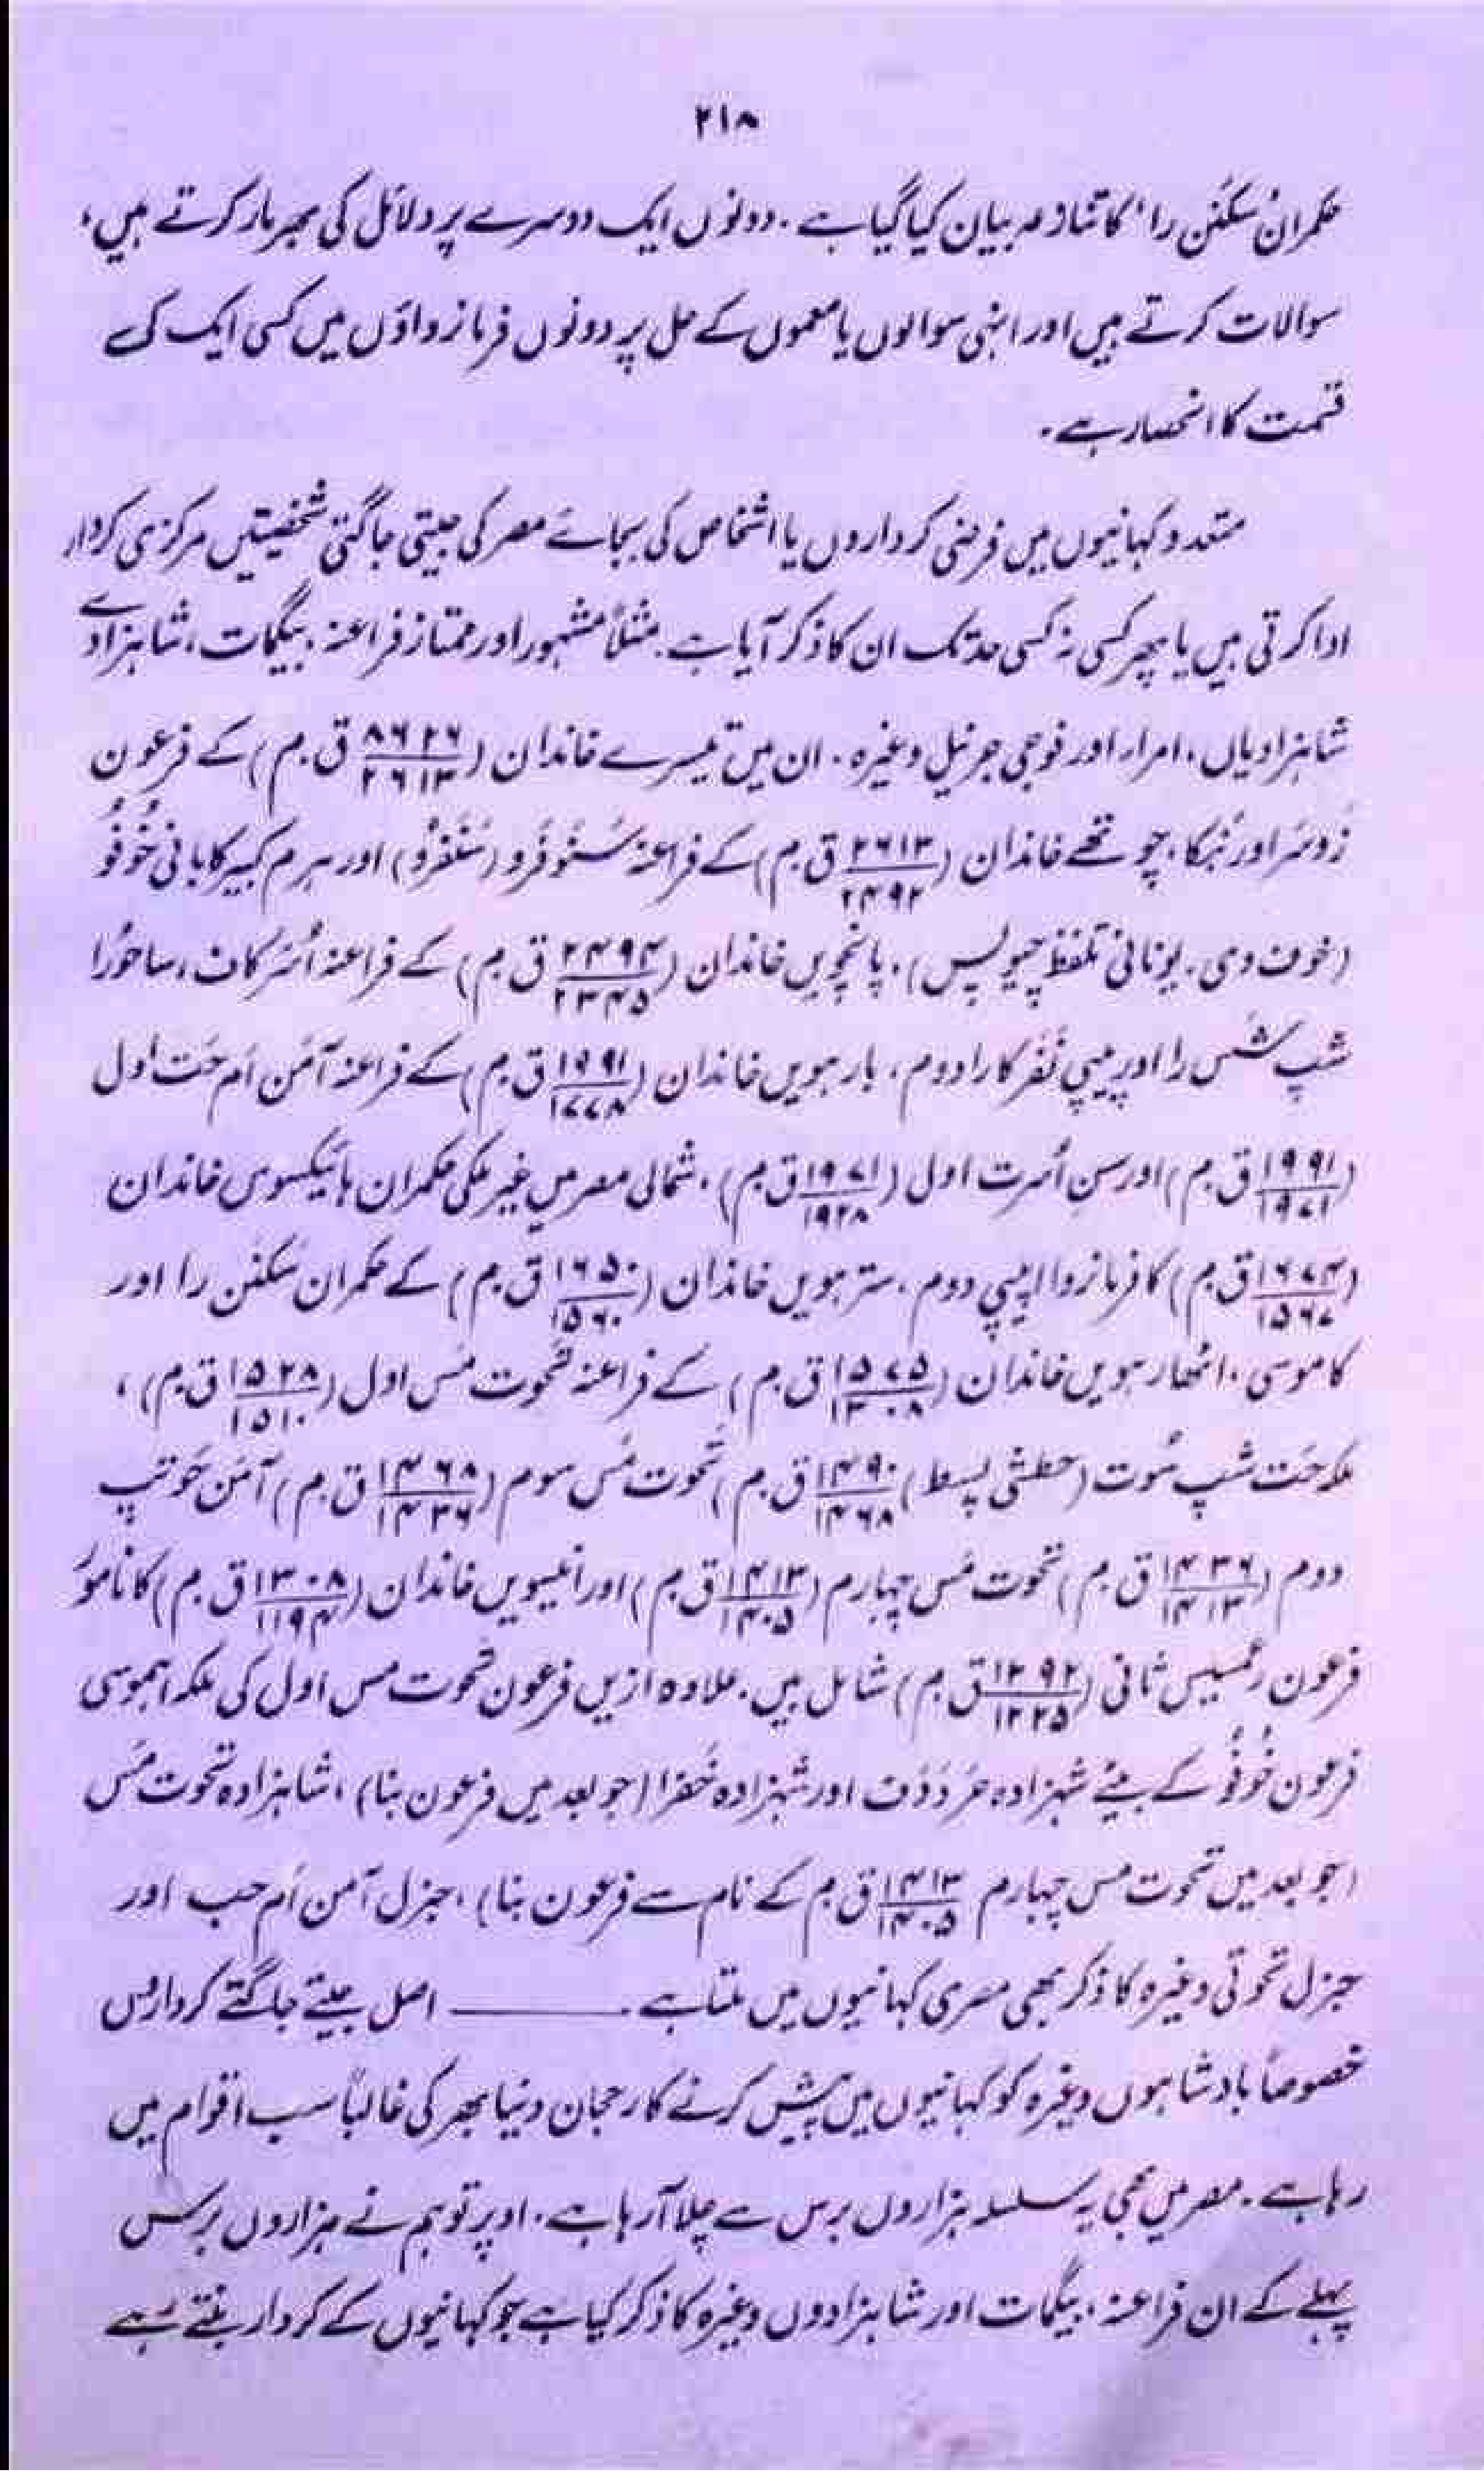 ۲۱۸
حکمران سکنن را' کا تنازعہ بیان کیا گیا ہے۔ دونوں ایک دوسرے پر دلائل کی بھرمار کرتے ہیں،
سوالات کرتے ہیں اور انہی سوالوں یا معموں کے حل پر دونوں فرمانرواؤں میں کسی ایک کی
قسمت کا انحصار ہے۔
متعدد کہانیوں میں فرضی کرداروں یا اشخاص کی بجائے مصر کی جیتی جاگتی شخصیتیں مرکزی کردار
ادا کرتی ہیں یا پھر کسی نہ کسی حد تک ان کا ذکر آیا ہے۔ مثلاً مشہور اور ممتاز فراعنہ، بیگمات، شاہزادے
شاہزادیاں، امراء اور فوجی جرنیل وغیرہ۔ ان میں تیسرے خاندان (۸۶۲۶/۲۶۱۳ ق۔م) کے فرعون
زوسر اور نبکا، چوتھے خاندان (۲۶۱۳/۲۴۹۲ ق۔م) کے فراعنہ سنوفرو (سنفرو) اور ہرم کبیر کا بانی خوفو
(خوف وی۔ یونانی تلفظ چیوپس)، پانچویں خاندان (۲۴۹۴/۲۳۴۵ ق۔م) کے فراعنہ اسرکاف، ساحورا
شپ شس را اور پیپی نفرکارا دوم، بارہویں خاندان (۱۹۹۱/۱۷۷۸ ق۔م) کے فراعنہ آمن ام حت اول
(۱۹۹۱/۱۹۷۱ ق۔م) اور سن اسرت اول (۱۹۷۱/۱۹۲۸ ق۔م)، شمالی مصر میں غیر ملکی حکمران ہائیکسوس خاندان
(۱۶۷۴/۱۵۶۷ ق۔م) کا فرمانروا اپیپی دوم، سترہویں خاندان (۱۶۵۰/۱۵۶۰ ق۔م) کے حکمران سکنن را اور
کاموسی، اٹھارہویں خاندان (۱۵۷۵/۱۳۰۸ ق۔م) کے فراعنہ تحوت مس اول (۱۵۲۸/۱۵۱۰ ق۔م)،
ملکہ حت شپ سوت (حطشی پسط) (۱۴۹۰/۱۴۶۸ ق۔م) تحوت مس سوم (۱۴۶۸/۱۴۳۶ ق۔م) آمن حوتپ
دوم (۱۴۳۶/۱۴۱۳ ق۔م) تحوت مس چہارم (۱۴۱۳/۱۴۰۵ ق۔م) اور انیسویں خاندان (۱۳۰۸/۱۱۹۴ ق۔م) کا نامور
فرعون رعمسیس ثانی (۱۲۹۲/۱۲۲۵ ق۔م) شامل ہیں۔ علاوہ ازیں فرعون تحوت مس اول کی ملکہ اہموسی
فرعون خوفو کے بیٹے شہزادہ حرددف اور شہزادہ خفرا (جو بعد میں فرعون بنا)، شاہزادہ تحوت مس
(جو بعد میں تحوت مس چہارم ۱۴۱۳/۱۴۰۵ ق۔م کے نام سے فرعون بنا)، جنرل آمن ام حب اور
جنرل تحوتی وغیرہ کا ذکر بھی مصری کہانیوں میں ملتا ہے۔ ——— اصل جیتے جاگتے کرداروں
خصوصاً بادشاہوں وغیرہ کو کہانیوں میں پیش کرنے کا رجحان دنیا بھر کی غالباً سب اقوام میں
رہا ہے۔ مصر میں بھی یہ سلسلہ ہزاروں برس سے چلا آ رہا ہے۔ اوپر تو ہم نے ہزاروں برس
پہلے کے ان فراعنہ، بیگمات اور شاہزادوں وغیرہ کا ذکر کیا ہے جو کہانیوں کے کردار بنتے رہے